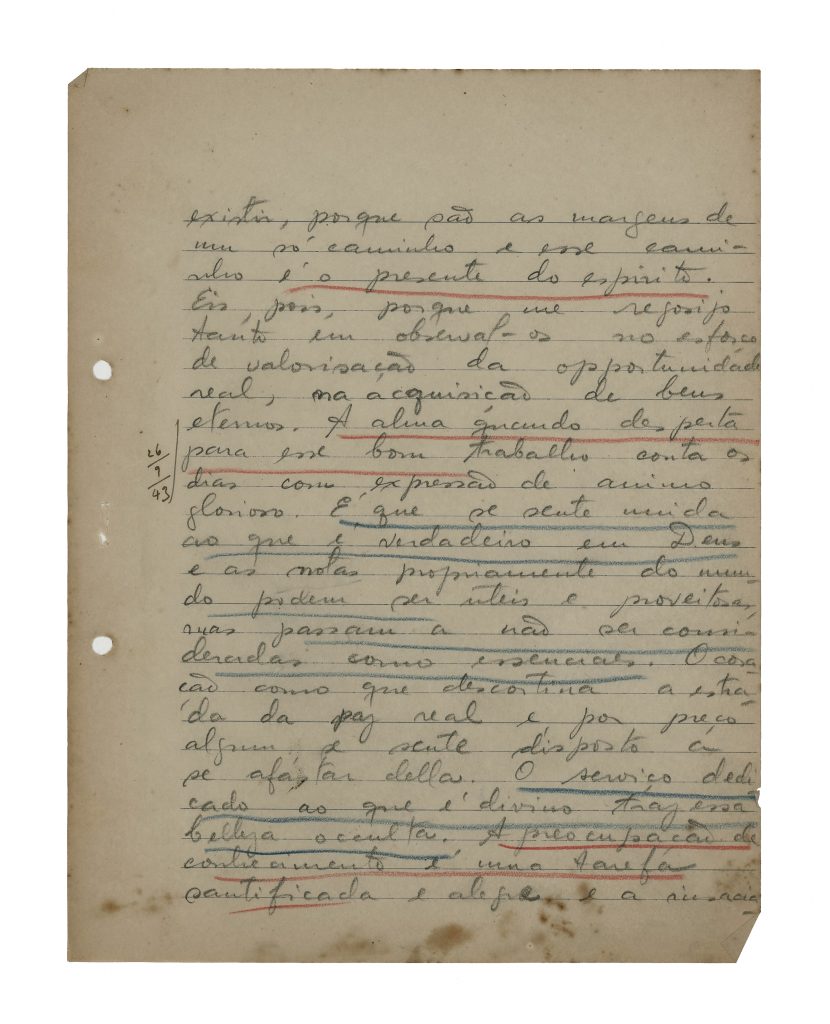 existir, porque são as margens de
um só caminho e esse cami-
nho é o presente do espirito.
Eis, pois, porque me regosijo
tanto em observal-os no esforço
de valorisação da opportunidade
real, na acquisição de bens
eternos. A alma quando desperta
para esse bom trabalho conta os
26/9/43
dias com expressão de animo
glorioso. É que se sente unida
ao que é verdadeiro em Deus
e as notas propriamente do mun-
do podem ser uteis e proveitosas,
mas passam a não ser consi-
deradas como essenciaes. O cora-
ção como que descortina a estra-
da da paz real e por preço
algum se sente disposto á
se afastar della. O serviço dedi-
cado ao que é divino traz essa
belleza occulta. A preocupação de
conhecimento é uma tarefa
santificada e alegre e a